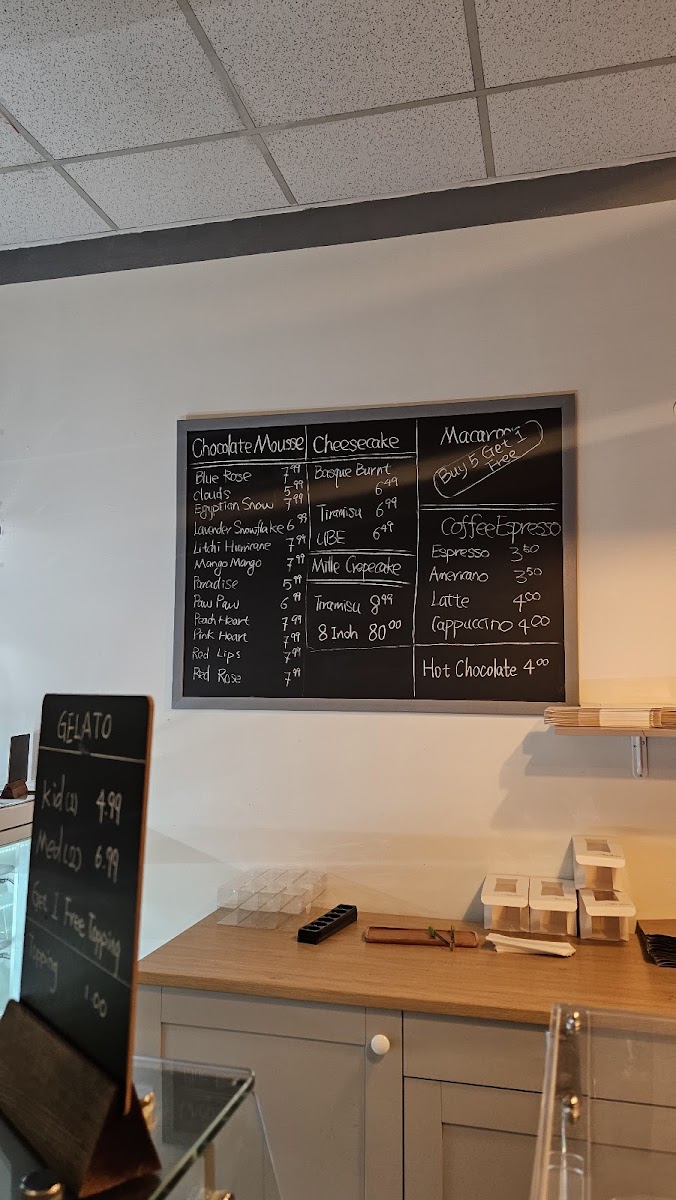 Chocolate Mousse
Blue Rose 7.99
Clouds 5.99
Egyptian Snow 7.99
Lavender Snowflake 6.99
Litchi Hurricane 7.99
Mango Mango 7.99
Paradise 5.99
Paw Paw 6.99
Peach Heart 7.99
Pink Heart 7.99
Red Lips 7.99
Red Rose 7.99
Cheesecake
Basque Burnt
6.49
Tiramisu 6.99
UBE 6.49
Mille Crepecake
Tiramisu 8.99
8 Inch 80.00
Buy 5 Get 1
Free
Coffee Espresso
Espresso 3.50
Americano 3.50
Latte 4.00
Cappuccino 4.00
Hot Chocolate 4.00
GELATO
Kid 4.99
Med (2) 6.99
Get 1 Free Topping
Topping 1.00